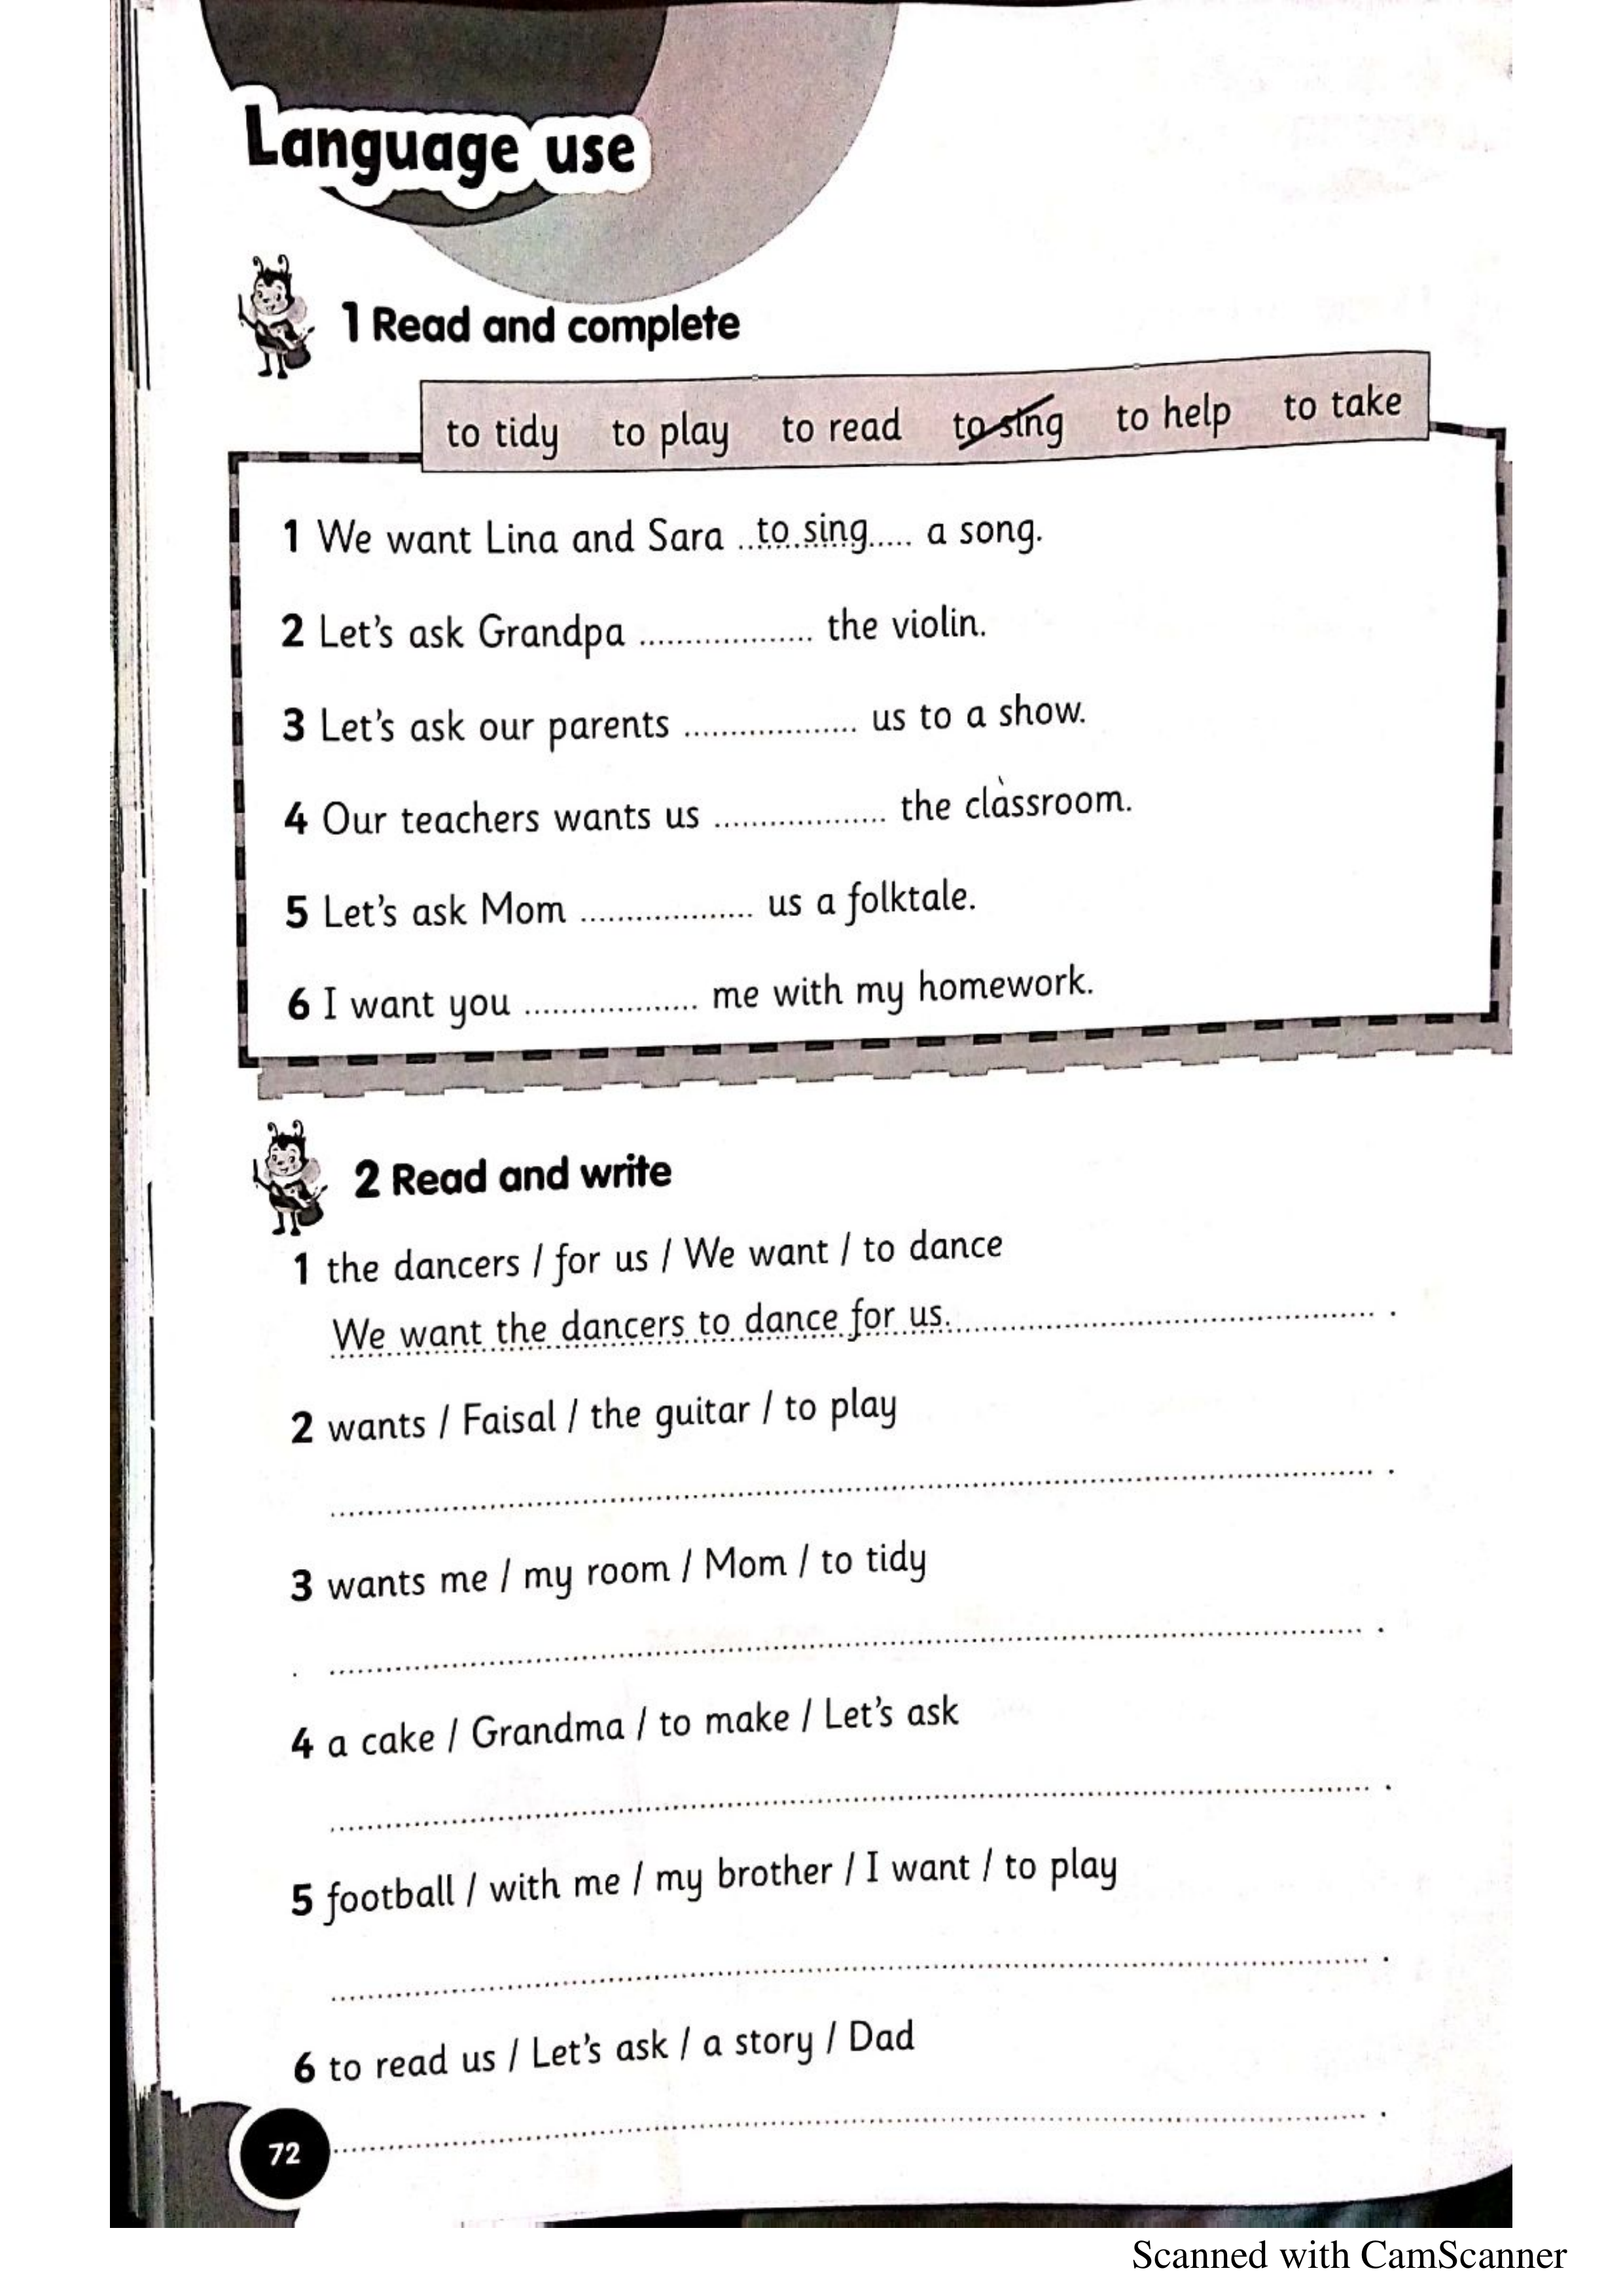 Language use
1 Read and complete
to tidy to play to read to sing to help to take
1 We want Lina and Sara ..to sing..... a song.
2 Let's ask Grandpa ................... the violin.
3 Let's ask our parents ................... us to a show.
4 Our teachers wants us ................... the classroom.
5 Let's ask Mom ................... us a folktale.
6 I want you ................... me with my homework.
2 Read and write
1 the dancers / for us / We want / to dance
We want the dancers to dance for us. .
2 wants / Faisal / the guitar / to play
.
3 wants me / my room / Mom / to tidy
.
4 a cake / Grandma / to make / Let's ask
.
5 football / with me / my brother / I want / to play
.
6 to read us / Let's ask / a story / Dad
.
72
Scanned with CamScanner